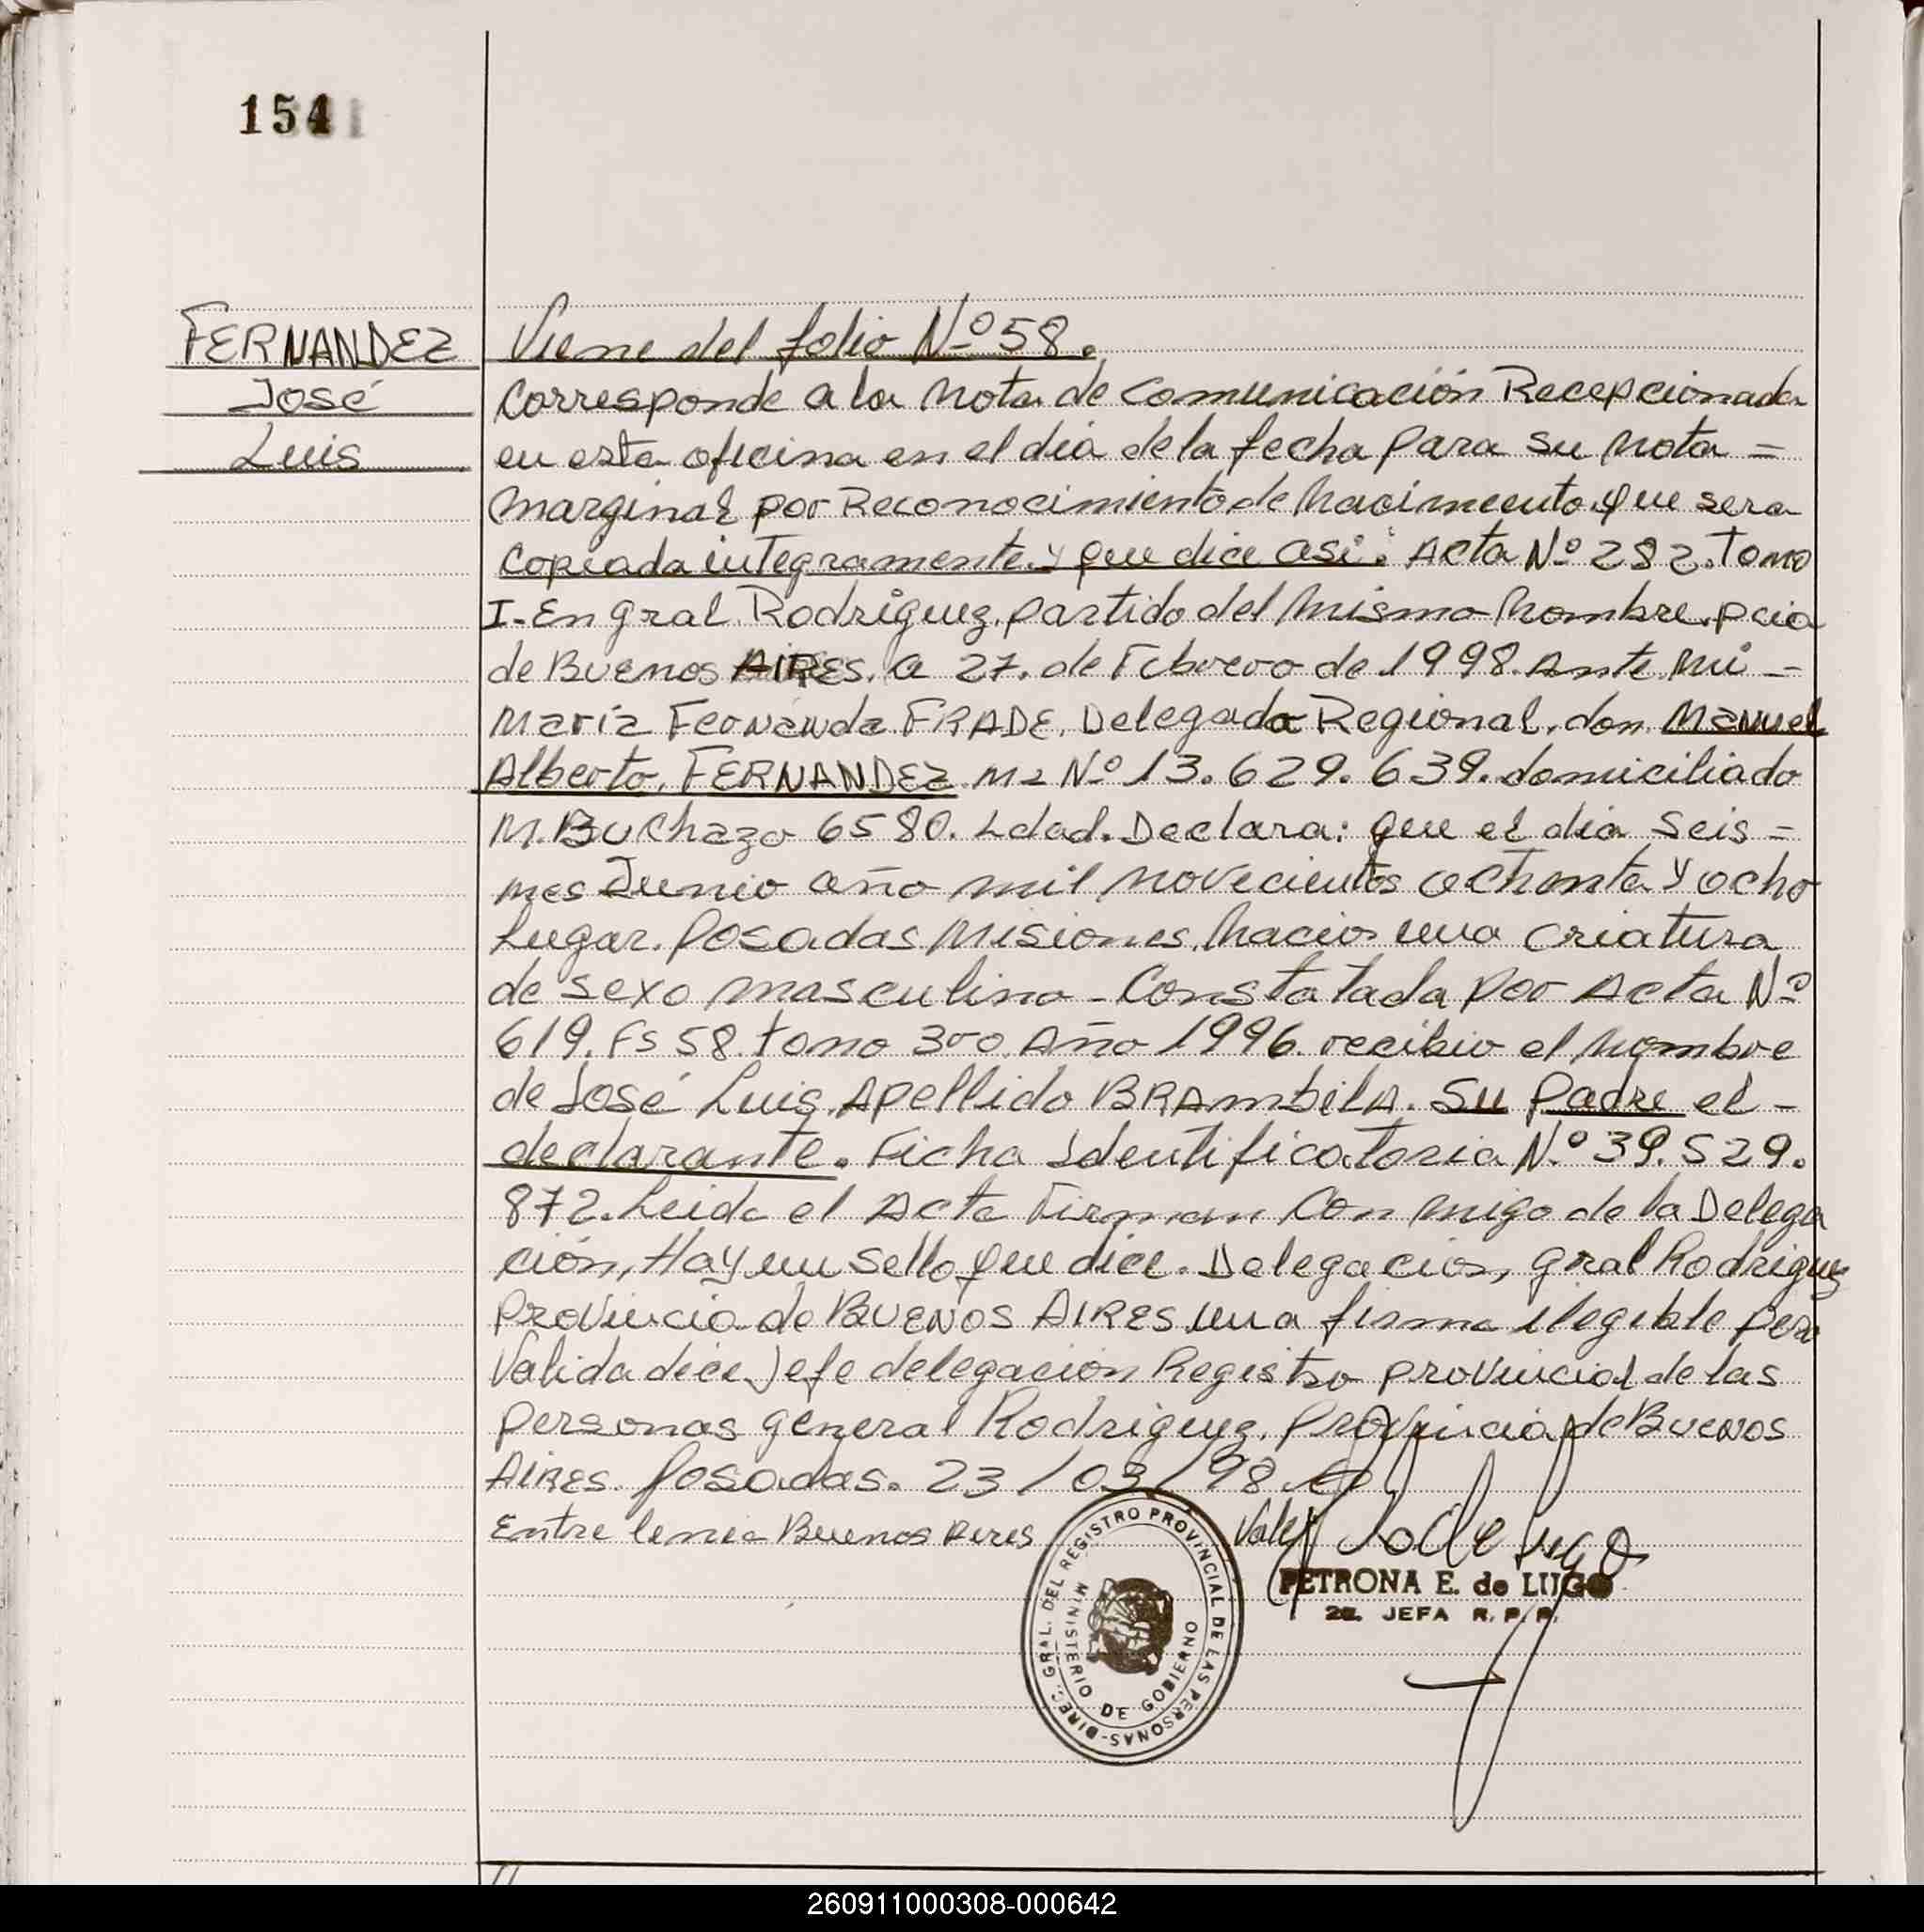 154
FERNANDEZ
José
Luis
Viene del folio Nº 58.
Corresponde a la Nota de Comunicación Recepcionada
en esta oficina en el día de la fecha para su Nota =
Marginal por Reconocimiento de Nacimiento que sera
Copiada integramente y que dice asi: Acta Nº 282. Tomo
I - En Gral Rodriguez. partido del Mismo Nombre. pcia
de Buenos AIRES. a 27. de Febrero de 1998. Ante Mi -
María Fernanda FRADE. Delegada Regional. don Manuel
Alberto. FERNANDEZ. Nº 13.629.639. domiciliado
M. Buchazo 6580. Ldad. Declara: que el día Seis =
mes Junio año mil Novecientos ochenta y ocho
Lugar. Posadas Misiones. Nacio una Criatura
de sexo masculino - Constatada por Acta Nº
619. Fs 58. tomo 300. Año 1996. recibio el Nombre
de José Luis. Apellido BRAmbilA. Su Padre el -
declarante. Ficha Identificatoria Nº 39.529.
872. Leida el Acta Firman Con migo de la Delega
ción, Hay un Sello que dice. Delegacion, Gral Rodriguez
Provincia de Buenos AIRES una firma ilegible Pero
Valida dice Jefe delegación Registro provincial de las
personas general Rodriguez. Provincia de Buenos
AIRES. Posadas. 23/03/98
Entre linea Buenos Aires Vale
DIREC. GRAL. DEL REGISTRO PROVINCIAL DE LAS PERSONAS
MINISTERIO DE GOBIERNO
PETRONA E. de LUGO
2a. JEFA R. P. P.
260911000308-000642